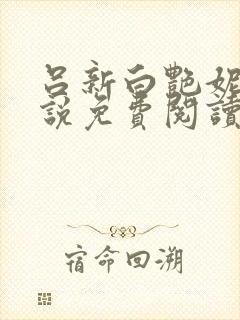 呂新白艷妮
說免費閱讀
宿命回溯